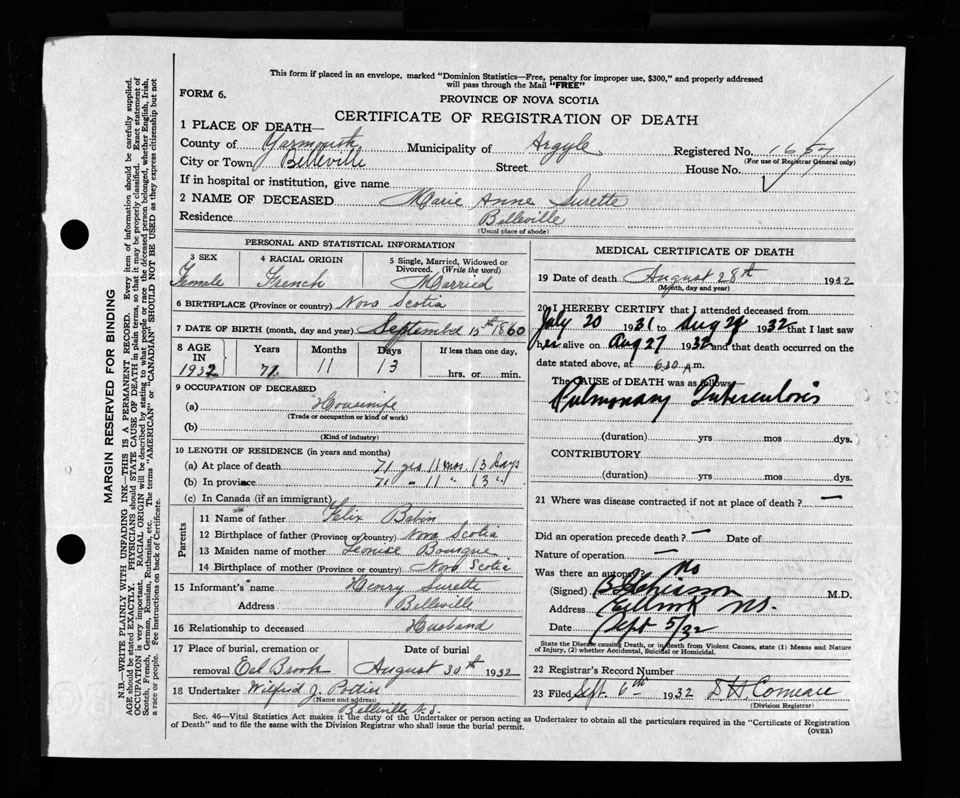 This form if placed in an envelope, marked "Dominion Statistics—Free, penalty for improper use, $300," and properly addressed
will pass through the Mail "FREE"
FORM 6.
PROVINCE OF NOVA SCOTIA
CERTIFICATE OF REGISTRATION OF DEATH
1 PLACE OF DEATH—
County of Yarmouth Municipality of Argyle Registered No. 1657
(For use of Registrar General only)
City or Town Belleville Street House No.
If in hospital or institution, give name
2 NAME OF DECEASED Marie Anne Surette
Residence Belleville
(Usual place of abode)
PERSONAL AND STATISTICAL INFORMATION
3 SEX 4 RACIAL ORIGIN 5 Single, Married, Widowed or
Divorced. (Write the word)
Female French Married
6 BIRTHPLACE (Province or country) Nova Scotia
7 DATE OF BIRTH (month, day and year) September 15th 1860
8 AGE IN Years Months Days If less than one day,
1932 71 11 13 hrs. or min.
9 OCCUPATION OF DECEASED
(a) Housewife
(Trade or occupation or kind of work)
(b)
(Kind of industry)
10 LENGTH OF RESIDENCE (in years and months)
(a) At place of death 71 yrs 11 mos. 13 days
(b) In province 71 " 11 " 13 "
(c) In Canada (if an immigrant)
Parents
11 Name of father Felix Babin
12 Birthplace of father (Province or country) Nova Scotia
13 Maiden name of mother Bourque
14 Birthplace of mother (Province or country) Nova Scotia
15 Informant's name Henry Surette
Address Belleville
16 Relationship to deceased Husband
17 Place of burial, cremation or Date of burial
removal Eel Brook August 30th 1932
18 Undertaker Wilfrid J. Pottier
(Name and address)
Belleville N.S.
MEDICAL CERTIFICATE OF DEATH
19 Date of death August 28th 1932
(Month, day and year)
20 I HEREBY CERTIFY that I attended deceased from
July 20 1931 to Aug 28 1932 that I last saw
her alive on Aug 27 1932 and that death occurred on the
date stated above, at 6.30 A m.
The CAUSE OF DEATH was as follows—
Pulmonary Tuberculosis
(duration) yrs mos dys.
CONTRIBUTORY
(duration) yrs mos dys.
21 Where was disease contracted if not at place of death? —
Did an operation precede death? — Date of
Nature of operation —
Was there an autopsy? No
(Signed) M.D.
Address Eelbrook NS.
Date Sept 5/32
State the Disease causing Death, or in death from Violent Causes, state (1) Means and Nature
of Injury, (2) whether Accidental, Suicidal or Homicidal.
22 Registrar's Record Number
23 Filed Sept. 6th 1932 Comeau
(Division Registrar)
Sec. 46—Vital Statistics Act makes it the duty of the Undertaker or person acting as Undertaker to obtain all the particulars required in the "Certificate of Registration
of Death" and to file the same with the Division Registrar who shall issue the burial permit.
(OVER)
MARGIN RESERVED FOR BINDING
N.B.—WRITE PLAINLY WITH UNFADING INK—THIS IS A PERMANENT RECORD. Every item of information should be carefully supplied.
AGE should be stated EXACTLY. PHYSICIANS should STATE CAUSE OF DEATH in plain terms, so that it may be properly classified. Exact statement of
OCCUPATION is very important. RACIAL ORIGIN will be described by stating to what people or race the deceased person belonged, whether English, Irish,
Scotch, French, German, Russian, Ruthenian, etc. The terms "AMERICAN" or "CANADIAN" SHOULD NOT BE USED as they express citizenship but not
a race or people. See instructions on back of Certificate.